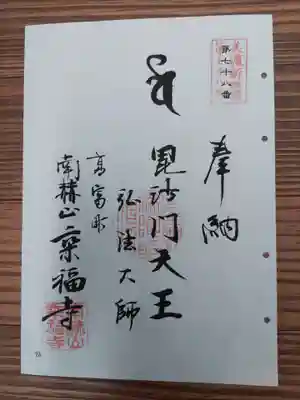 第七十八番
奉納
毘沙门天王
弘法大師
高富町
南山乗福寺